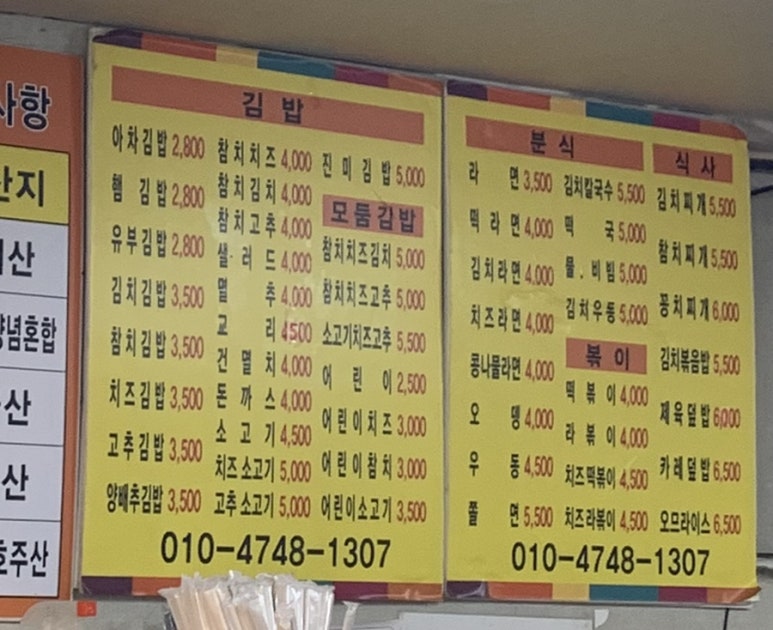 사항
단지
산
양념혼합
산
산
호주산
김밥
아차김밥 2,800
햄 김밥 2,800
유부김밥 2,800
김치김밥 3,500
참치김밥 3,500
치즈김밥 3,500
고추김밥 3,500
양배추김밥 3,500
참치치즈 4,000
참치김치 4,000
참치고추 4,000
샐·러드 4,000
멸 추 4,000
교 리 4500
건 멸 치 4,000
돈 까 스 4,000
소 고 기 4,500
치즈소고기 5,000
고추소고기 5,000
진미김밥 5,000
모둠김밥
참치치즈김치 5,000
참치치즈고추 5,000
소고기치즈고추 5,500
어 린 이 2,500
어린이치즈 3,000
어린이참치 3,000
어린이소고기 3,500
010-4748-1307
분식
라 면 3,500
떡라면 4,000
김치라면 4,000
치즈라면 4,000
콩나물라면 4,000
오 뎅 4,000
우 동 4,500
쫄 면 5,500
김치칼국수 5,500
떡 국 5,000
물.비빔 5,000
김치우동 5,000
볶이
떡볶이 4,000
라볶이 4,000
치즈떡볶이 4,500
치즈라볶이 4,500
식사
김치찌개 5,500
참치찌개 5,500
꽁치찌개 6,000
김치볶음밥 5,500
제육덮밥 6,000
카레덮밥 6,500
오므라이스 6,500
010-4748-1307